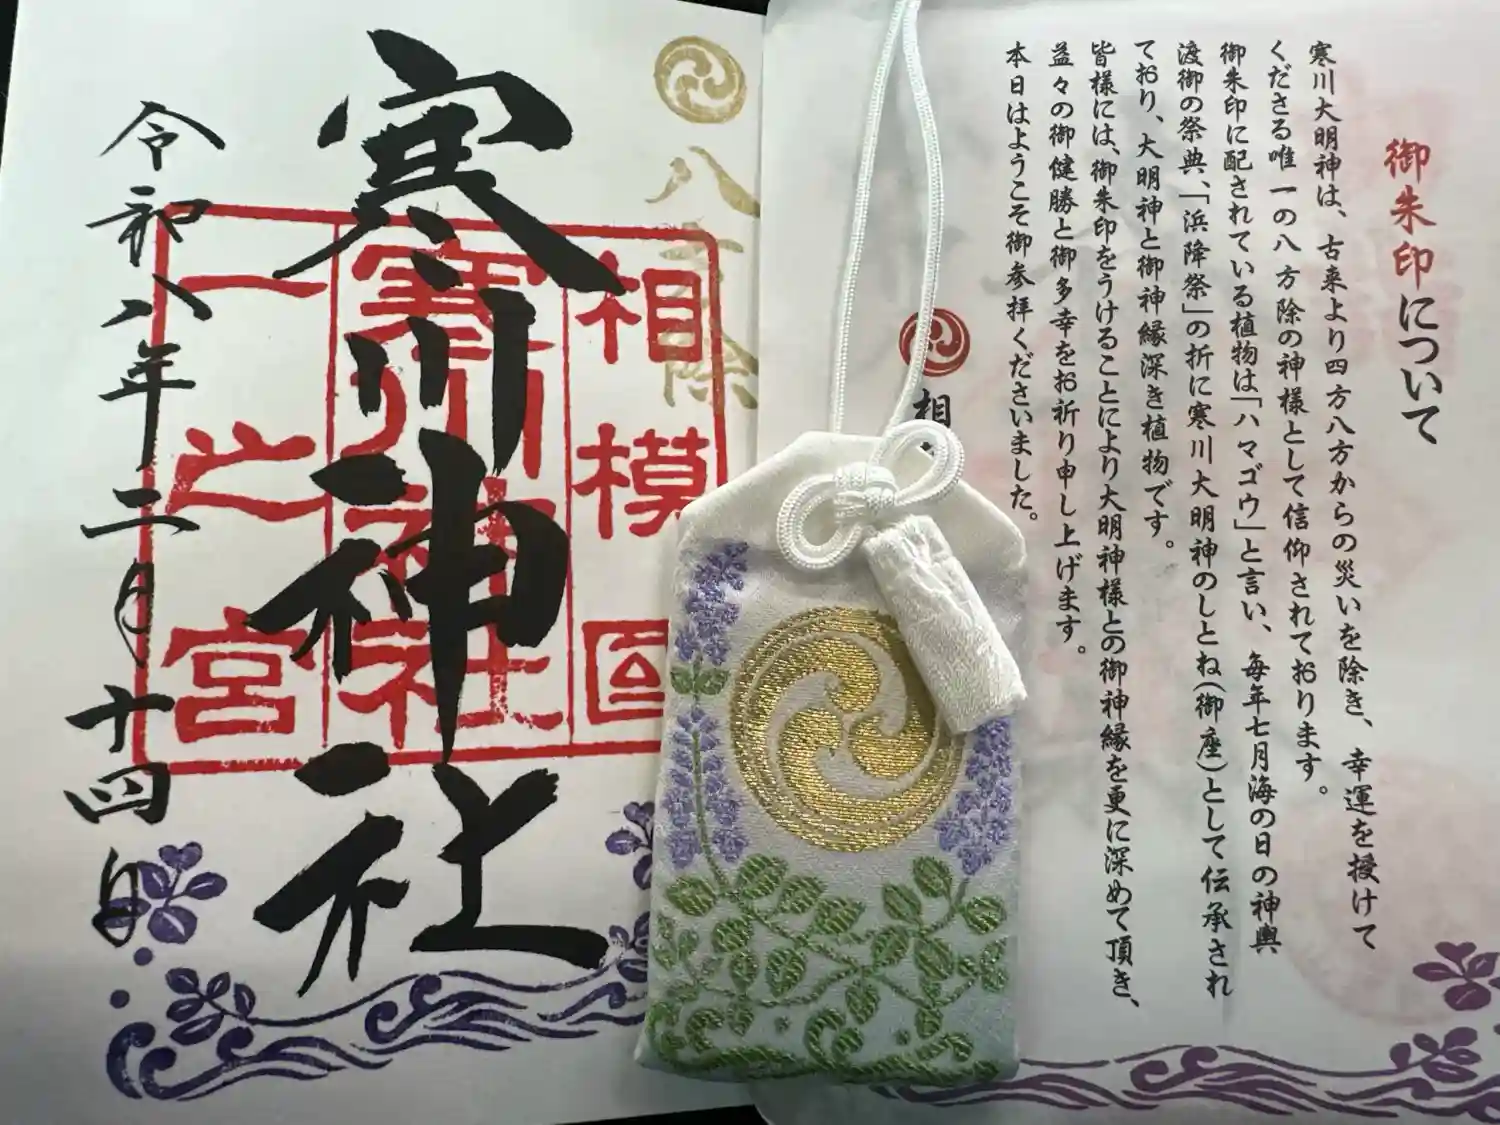 御朱印について
寒川大明神は、古来より四方八方からの災いを除き、幸運を授けて
くださる唯一の八方除の神様として信仰されております。
御朱印に配されている植物は「ハマゴウ」と言い、毎年七月海の日の神輿
渡御の祭典、「浜降祭」の折に寒川大明神のしとね(御座)として伝承され
ており、大明神と御神縁深き植物です。
皆様には、御朱印をうけることにより大明神様との御神縁を更に深めて頂き、
益々の御健勝と御多幸をお祈り申し上げます。
本日はようこそ御参拝くださいました。
相
八方除
相模國
寒川神社
一之宮
寒川神社
令和八年二月十四日